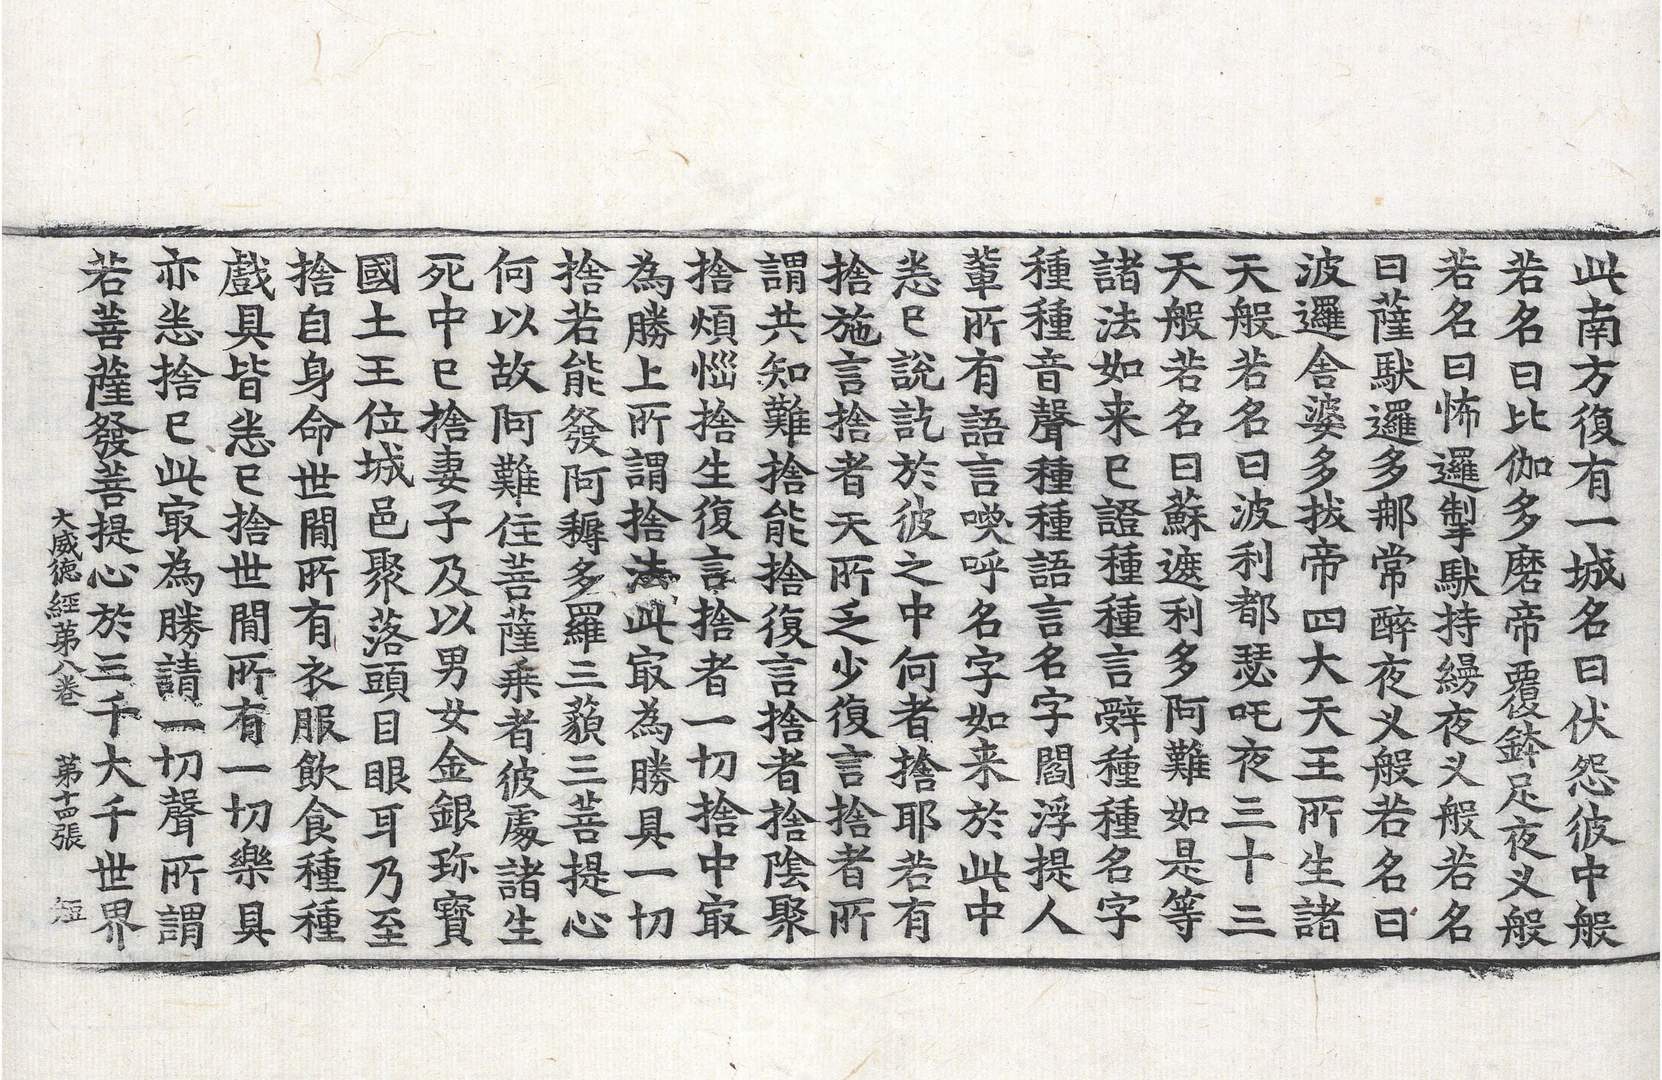 此南方復有一城名曰伏怨彼中般
若名曰比伽多磨帝覆鉢足夜叉般
若名曰怖邏掣馱持縵夜叉般若名
曰薩馱邏多那常醉夜叉般若名曰
波邏舍婆多拔帝四大天王所生諸
天般若名曰波利都瑟吒夜三十三
天般若名曰蘇遮利多阿難如是等
諸法如来已證種種言辤種種名字
種種音聲種種語言名字閻浮提人
輩所有語言喚呼名字如来於此中
悉已說訖於彼之中何者捨耶若有
捨施言捨者天所乏少復言捨者所
謂共知難捨能捨復言捨者捨陰聚
捨煩惱捨生復言捨者一切捨中㝡
為勝上所謂捨法此㝡為勝具一切
捨若能發阿耨多羅三藐三菩提心
何以故阿難住菩薩乘者彼處諸生
死中已捨妻子及以男女金銀珎寶
國土王位城邑聚落頭目眼耳乃至
捨自身命世間所有衣服飲食種種
戲具皆悉已捨世間所有一切樂具
亦悉捨已此㝡為勝請一切聲所謂
若菩薩發菩提心於三千大千世界
大威德經第八卷 第十四張 短